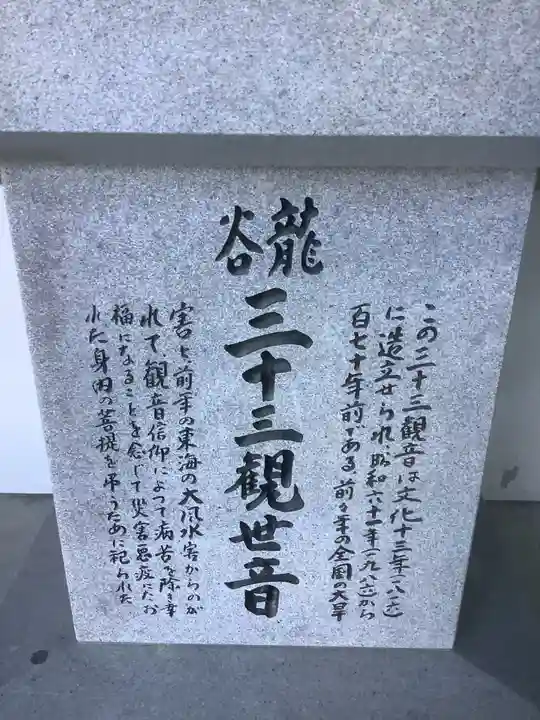 龍谷
三十三観世音
この三十三観音は文化十三年(一八一六)
に造立せられ昭和六十一年(一九八六)から
百七十年前である 前々年の全国の大旱
害と前年の東海の大風水害からのが
れて観音信仰によって病苦を除き幸
福になることを念じて災害悪疫にたお
れた身内の菩提を弔うために祀られた